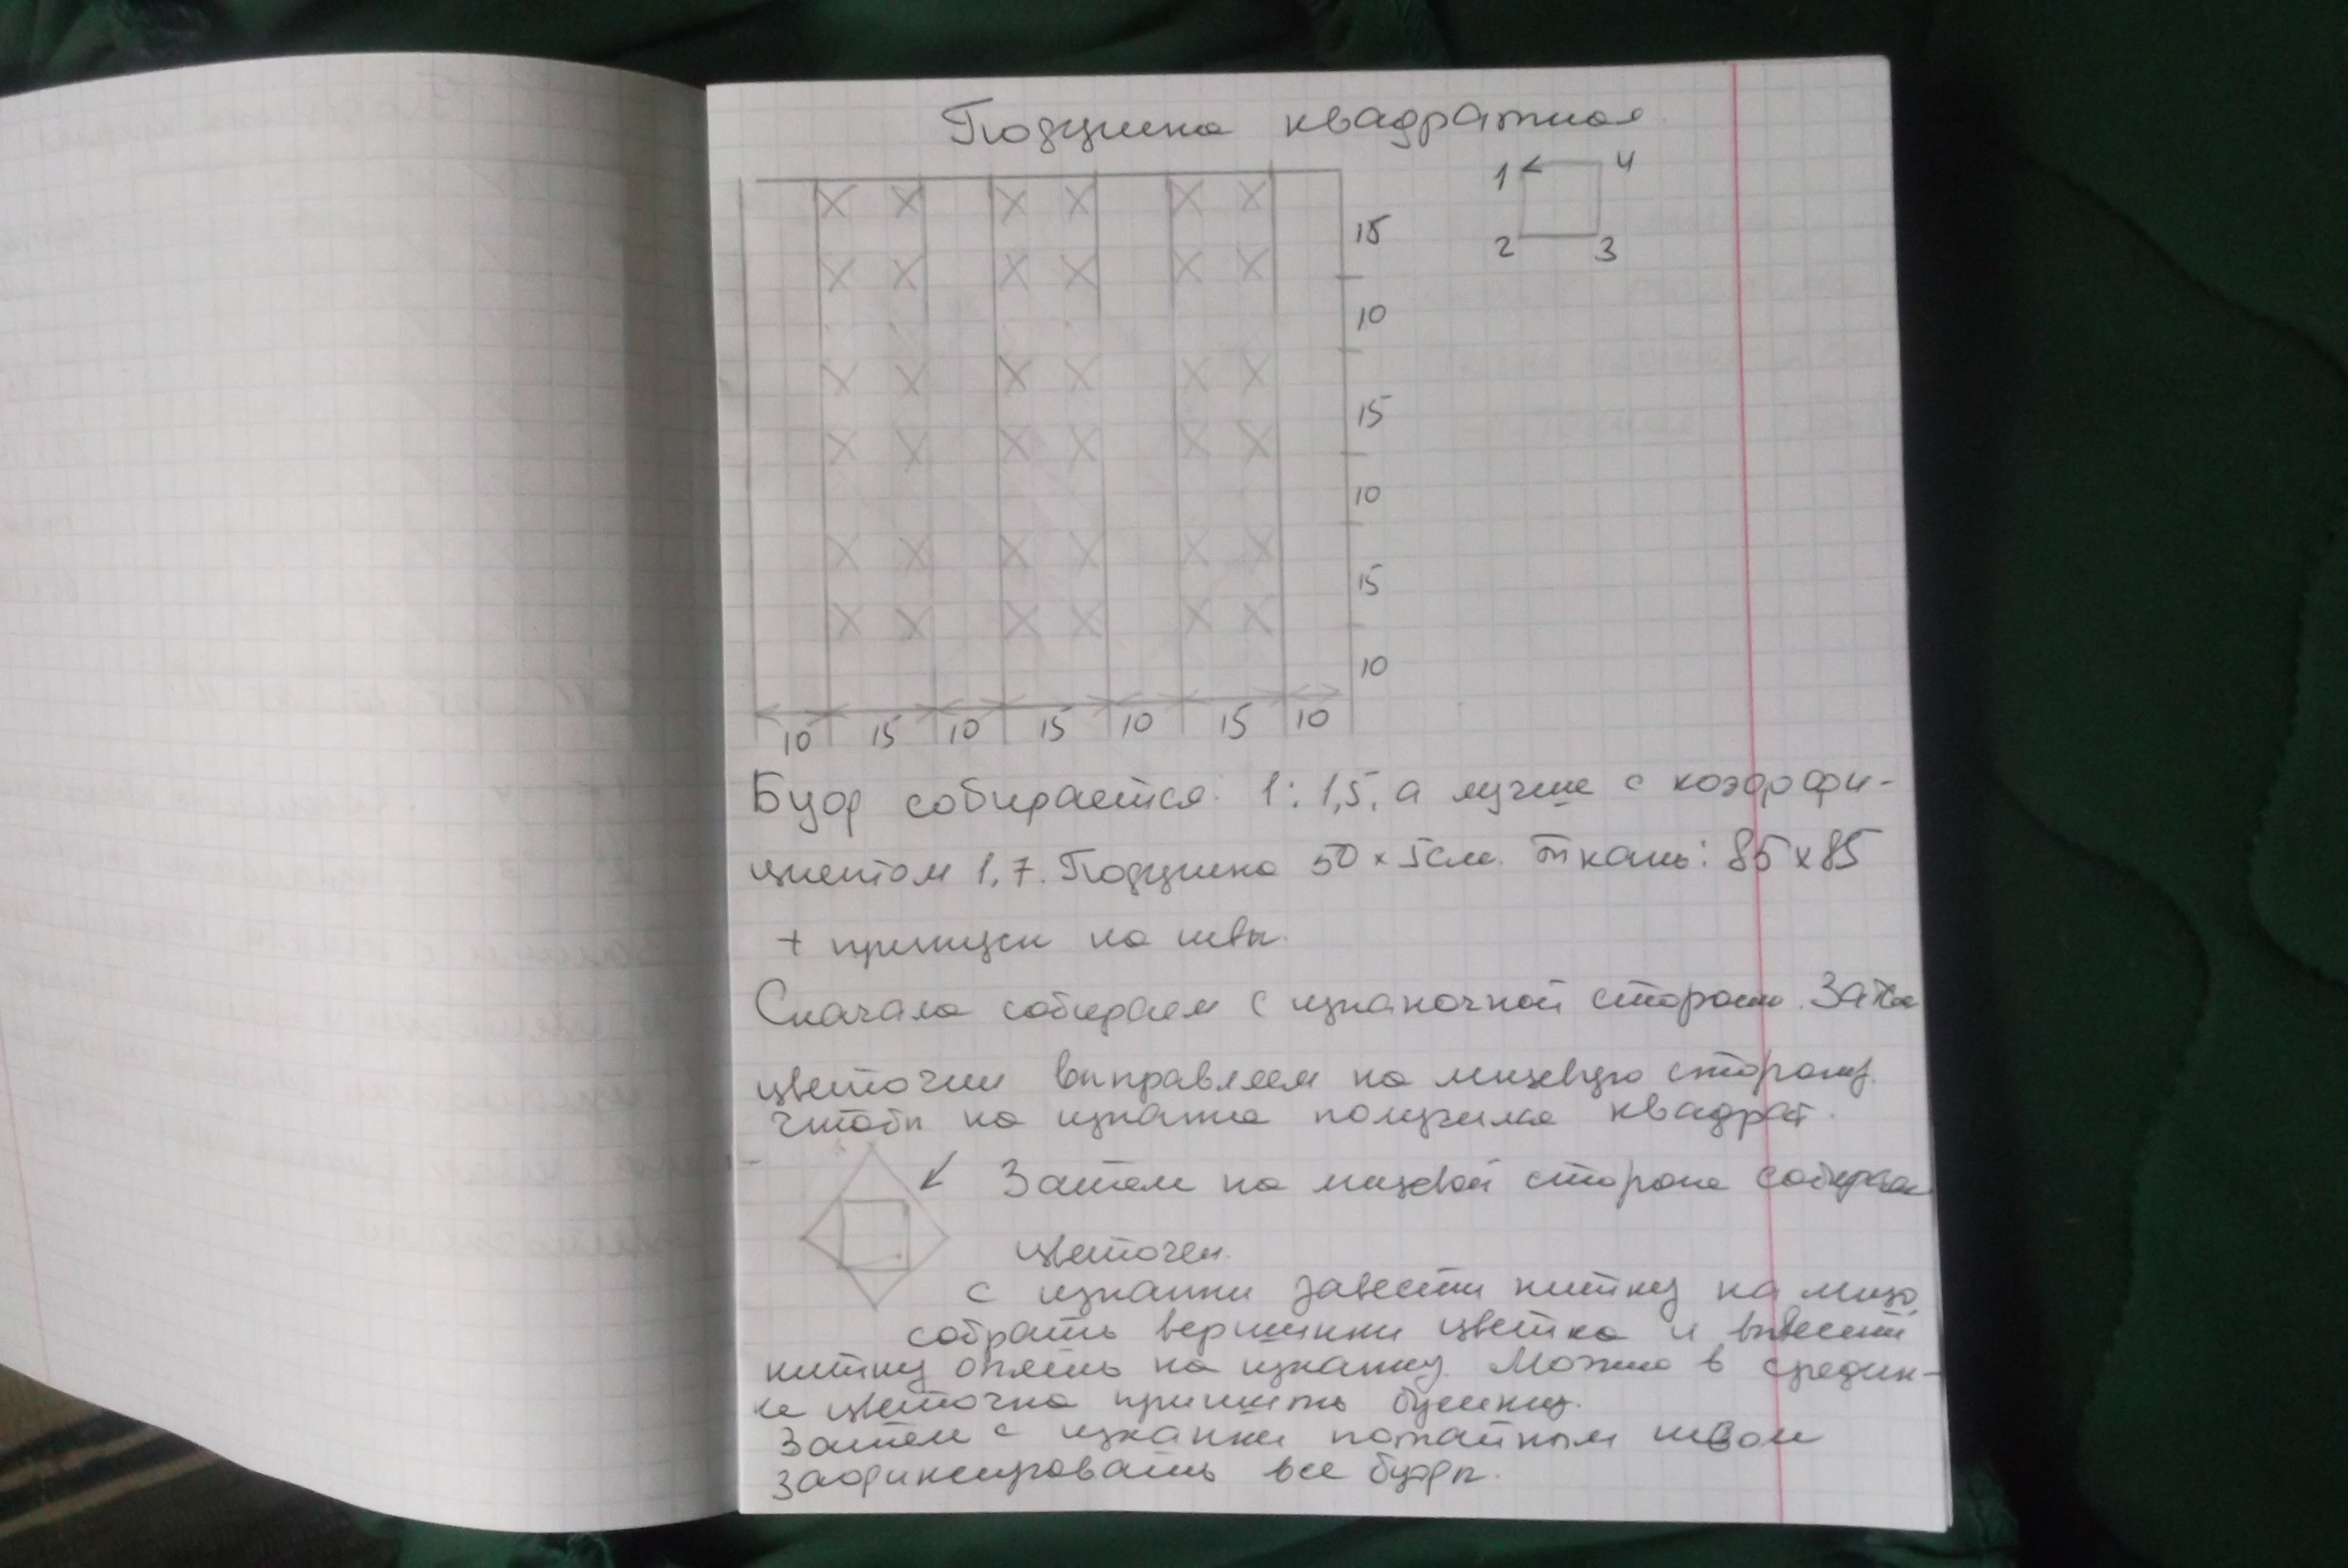 Подушка квадратная
1 4
2 3
15
10
15
10
15
10
10 15 10 15 10 15 10
Буф собирается: 1:1,5, а лучше с коэффи-
циентом 1,7. Подушка 50 × 5см. Ткань: 85 х 85
+ припуск на швы.
Сначала собираем с изнаночной стороны. Зате
цветочки выправляем на лицевую сторону.
Чтобы на изнанке получился квадрат.
Затем на лицевой стороне собирае
цветочек.
с изнанки завести нитку на лицо,
собрать вершинки цветка и вывести
нитку опять на изнанку. Можно в середин-
ке цветочка пришить бусинку.
Затем с изнанки потайным швом
зафиксировать все буфы.